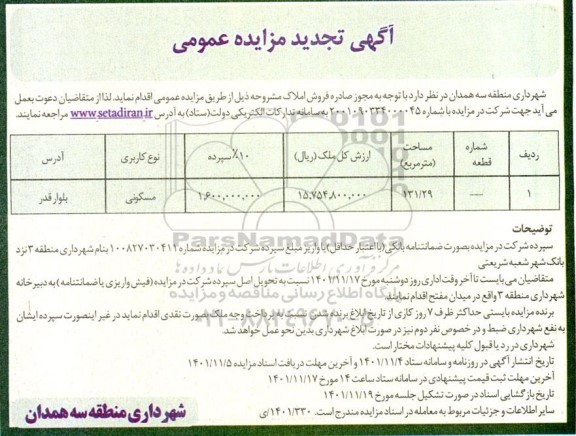 آگهی تجدید مزایده عمومی
شهرداری منطقه سه همدان در نظر دارد با توجه به مجوز صادره فروش املاک مشروحه ذیل از طریق مزایده عمومی اقدام نماید. لذا از متقاضیان دعوت بعمل
می آید جهت شرکت در مزایده با شماره ۲۰۰۱۰۹۰۳۳۴۰۰۰۰۴۵ به سامانه تدارکات الکتریکی دولت (ستاد) به آدرس www.setadiran.ir مراجعه نمایند.
ردیف شماره قطعه مساحت (مترمربع) ارزش کل ملک (ریال) ۱۰٪ سپرده نوع کاربری آدرس
۱ — ۱۳۱/۲۹ ۱۵,۷۵۴,۸۰۰,۰۰۰ ۱,۶۰۰,۰۰۰,۰۰۰ مسکونی بلوار قدر
ParsNamadData
توضیحات
سپرده شرکت در مزایده بصورت ضمانتنامه بانکی (با اعتبار حداقل) یا واریز مبلغ سپرده شرکت در مزایده شماره ۱۰۰۸۲۷۰۳۰۴۱۲ بنام شهرداری منطقه ۳ نزد
بانک شهر شعبه شریعتی
متقاضیان می بایست تا آخر وقت اداری روز دوشنبه مورخ ۱۴۰۱/۱۱/۱۷ نسبت به تحویل اصل سپرده شرکت در مزایده (فیش واریزی یا ضمانتنامه) به دبیرخانه
شهرداری منطقه ۳ واقع در میدان مفتح اقدام نمایند.
برنده مزایده بایستی حداکثر ظرف ۷ روز کاری از تاریخ ابلاغ برنده شدن نسبت به پرداخت وجه ملک بصورت نقدی اقدام نماید در غیر اینصورت سپرده ایشان
به نفع شهرداری ضبط و در خصوص نفر دوم نیز در صورت ابلاغ شهرداری بدین نحو عمل خواهد شد.
شهرداری در رد یا قبول کلیه پیشنهادات مختار است.
تاریخ انتشار آگهی در روزنامه و سامانه ستاد ۱۴۰۱/۱۱/۴ و آخرین مهلت دریافت اسناد مزایده ۱۴۰۱/۱۱/۵
آخرین مهلت ثبت قیمت پیشنهادی در سامانه ستاد ساعت ۱۴ مورخ ۱۴۰۱/۱۱/۱۷
تاریخ بازگشایی اسناد در صورت تشکیل جلسه مورخ ۱۴۰۱/۱۱/۱۹
سایر اطلاعات و جزئیات مربوط به معامله در اسناد مزایده مندرج است. ۱۴۰۱/۳۳۰/ی
شهرداری منطقه سه همدان